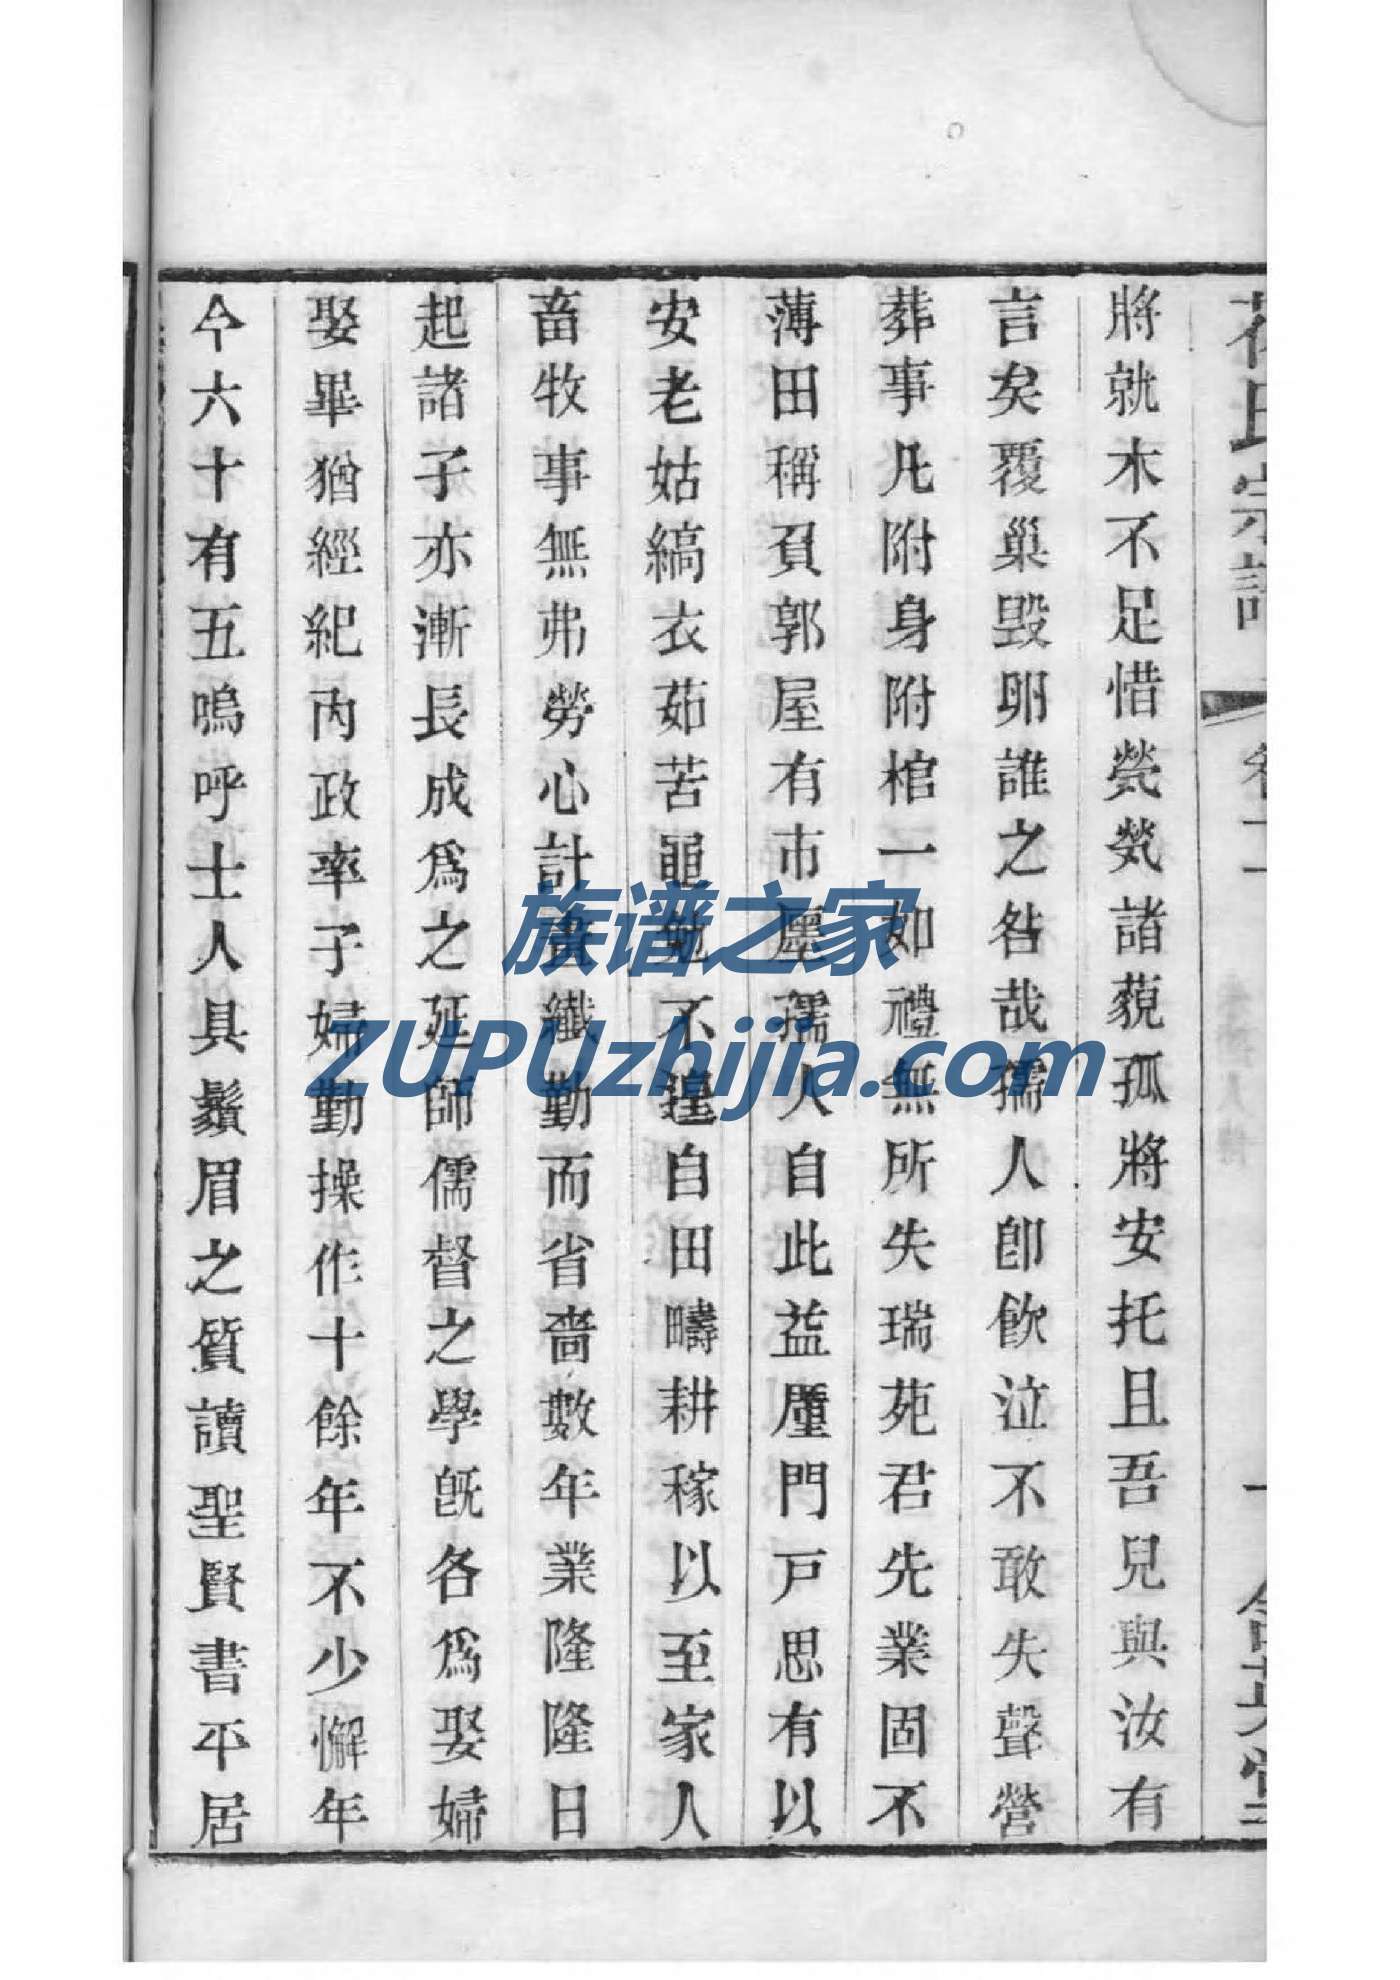 將就木不足惜煢煢諸藐孤將安托且吾兒與汝有
言矣覆巢毀卵誰之咎哉孺人卽飲泣不敢失聲營
葬事凡附身附棺一如禮無所失瑞苑君先業固不
薄田稱負郭屋有市廛孺人自此益廑門戸思有以
安老姑縞衣茹苦黽勉不遑自田疇耕稼以至家人
畜牧事無弗勞心計畫纖勤而省嗇數年業隆隆日
起諸子亦漸長成爲之延師儒督之學旣各爲娶婦
娶畢猶經紀內政率子婦勤操作十餘年不少懈年
今六十有五嗚呼士人具鬚眉之質讀聖賢書平居
族谱之家
ZUPUzhijia.com